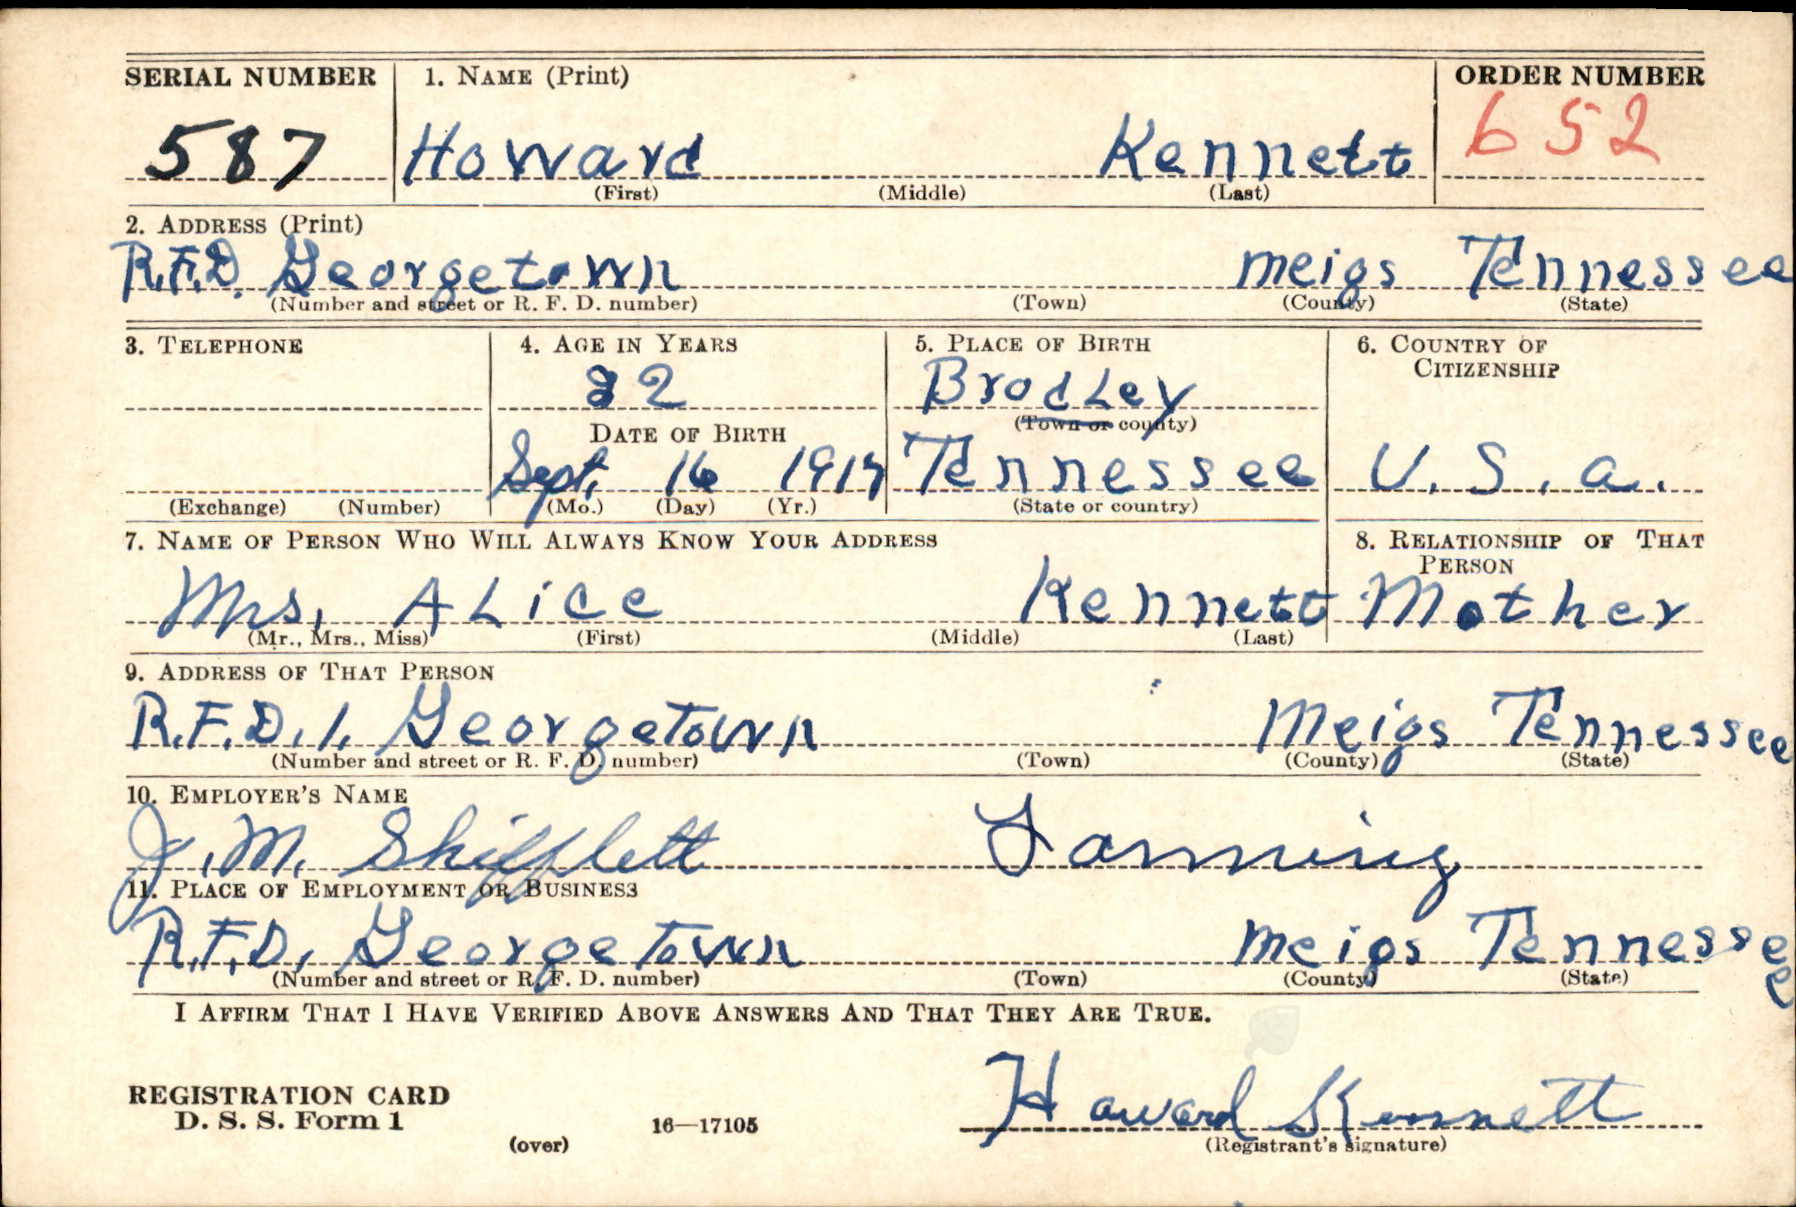 SERIAL NUMBER 1. NAME (Print) ORDER NUMBER
587 Howard Kennett 652
(First) (Middle) (Last)
2. ADDRESS (Print)
R.F.D. Georgetown Meigs Tennessee
(Number and street or R. F. D. number) (Town) (County) (State)
3. TELEPHONE 4. AGE IN YEARS 5. PLACE OF BIRTH 6. COUNTRY OF
CITIZENSHIP
22 Bradley
(Town or county)
DATE OF BIRTH
Sept. 16 Tennessee U. S. a.
(Exchange) (Number) (Mo.) (Day) (Yr.) (State or country)
7. NAME OF PERSON WHO WILL ALWAYS KNOW YOUR ADDRESS 8. RELATIONSHIP OF THAT
PERSON
Mrs. ALice Kennett Mother
(Mr., Mrs., Miss) (First) (Middle) (Last)
9. ADDRESS OF THAT PERSON
R.F.D. 1. Georgetown Meigs Tennessee
(Number and street or R. F. D. number) (Town) (County) (State)
10. EMPLOYER'S NAME
J. M. Shifflett Farming
11. PLACE OF EMPLOYMENT OR BUSINESS
R.F.D. Georgetown Meigs Tennessee
(Number and street or R. F. D. number) (Town) (County) (State)
I AFFIRM THAT I HAVE VERIFIED ABOVE ANSWERS AND THAT THEY ARE TRUE.
REGISTRATION CARD
D. S. S. Form 1 16—17105 Howard Kennett
(over) (Registrant's signature)